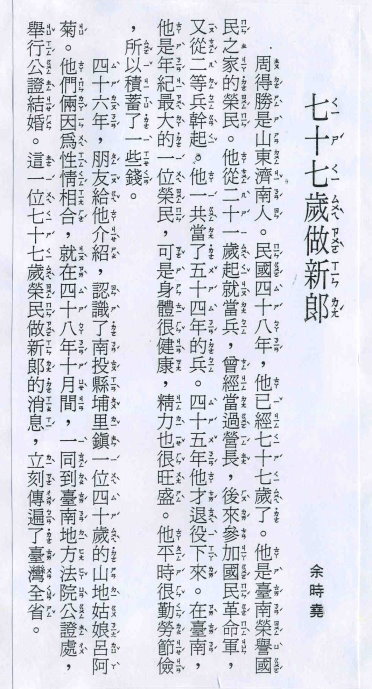 七十七歲做新郎
余時堯
周得勝是山東濟南人。民國四十八年，他已經七十七歲了。他是臺南榮譽國
民之家的榮民。他從二十一歲起就當兵，曾經當過營長，後來參加國民革命軍，
又從二等兵幹起。他一共當了五十四年的兵。四十五年他才退役下來。在臺南，
他是年紀最大的一位榮民，可是身體很健康，精力也很旺盛。他平時很勤勞節儉
，所以積蓄了一些錢。
四十六年，朋友給他介紹，認識了南投縣埔里鎮一位四十歲的山地姑娘呂阿
菊。他們倆因爲性情相合，就在四十八年十月間，一同到臺南地方法院公證處，
舉行公證結婚。這一位七十七歲榮民做新郎的消息，立刻傳遍了臺灣全省。